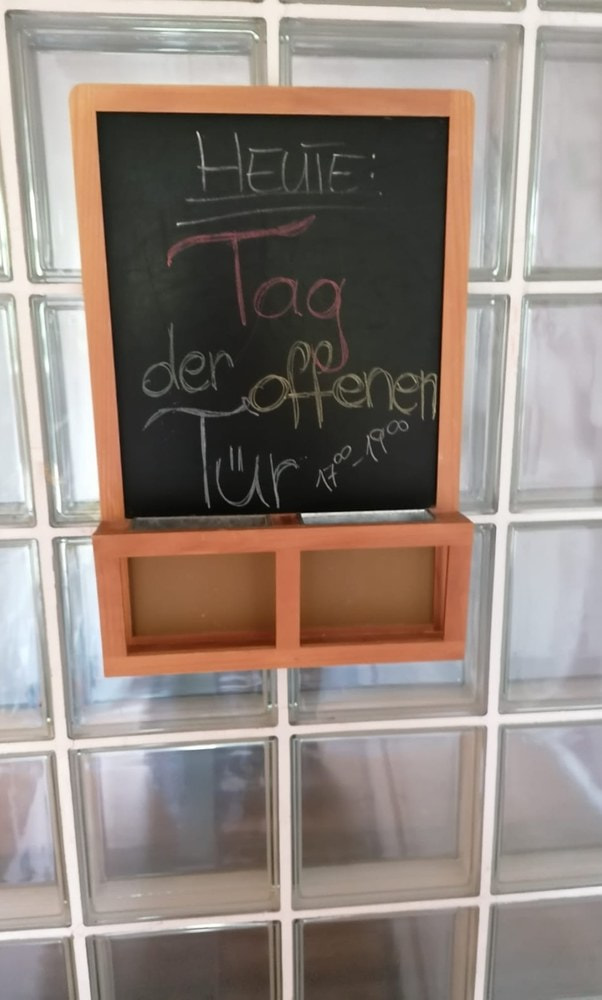 HEUTE:
Tag
der offenen
Tür 17⁰⁰ - 19⁰⁰